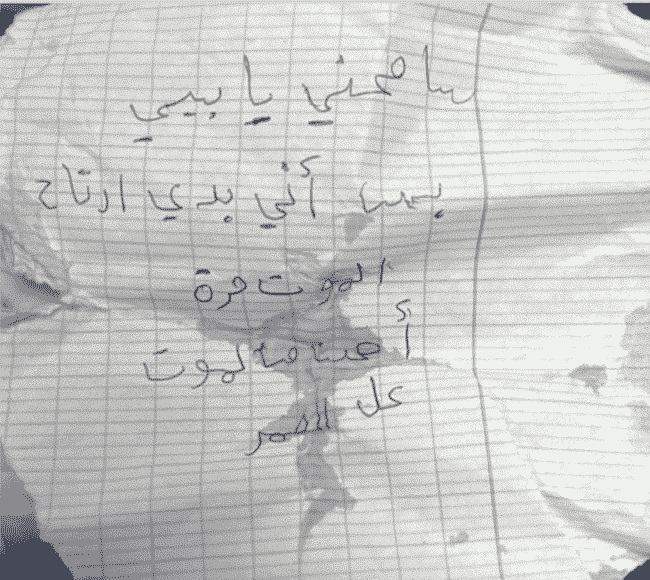 سامحني يا بيي
بس أني بدي ارتاح
الموت مرة
أحسن ما لموت
كل العمر